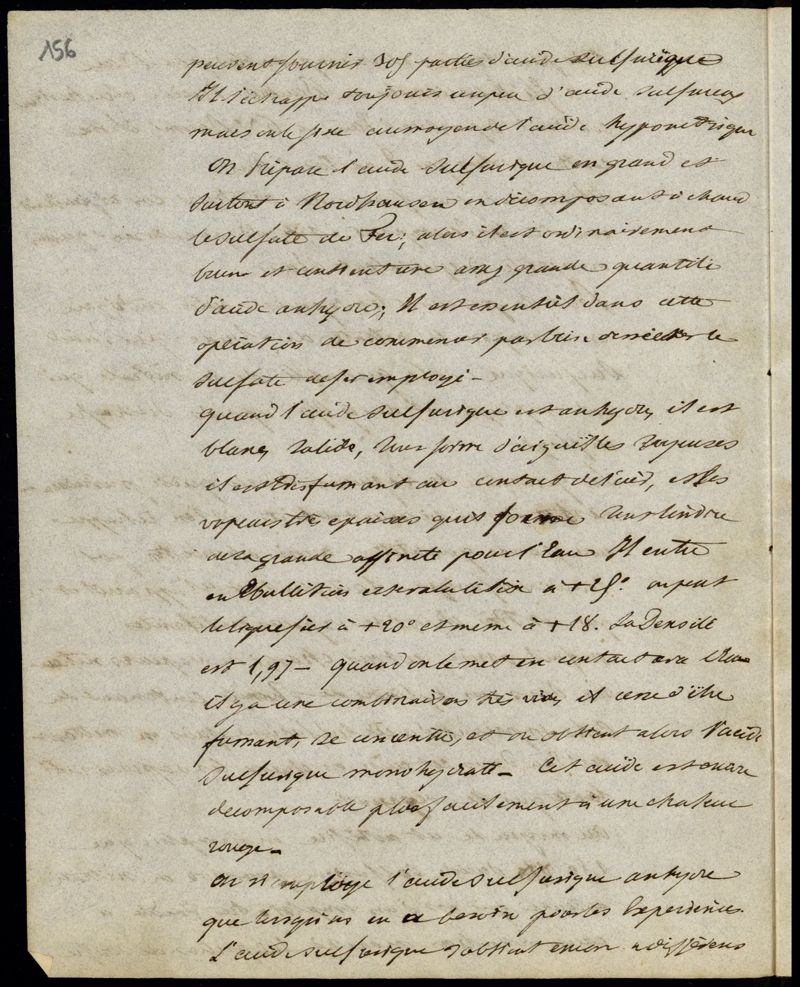 156
peuvent fournir 305 parties d'acide sulfurique
Il s'échappe toujours un peu d'acide sulfureux
mais on le fixe au moyen de l'acide hyponitrique
On prépare l'acide sulfurique en grand et
surtout à Nordhausen en décomposant à chaud
le sulfate de Fer, alors il est ordinairement
brun et contient une assez grande quantité
d'acide anhydre; Il est essentiel dans cette
opération de commencer par bien dessécher le
sulfate de fer employé –
quand l'acide sulfurique est anhydre, il est
blanc, solide, sous forme d'aiguilles soyeuses
il est très fumant au contact de l'air, et les
vapeurs très épaisses qu'il forme
de sa grande affinité pour l'eau Il entre
en Ebullition et se volatilise à +25° on peut
le liquefier à +20° et meme à +18. Sa Densité
est 1,97 – quand on le met en contact avec l'Eau
il y a une combinaison très vive, il cesse d'être
fumant, se concentre, et on obtient alors l'acide
sulfurique monohydraté – Cet acide est encore
decomposable plus facilement à une chaleur
rouge –
On n'emploie l'acide sulfurique anhydre
que lorsqu'on en a besoin pour les Experiences.
L'acide sulfurique s'obtient encore à différens